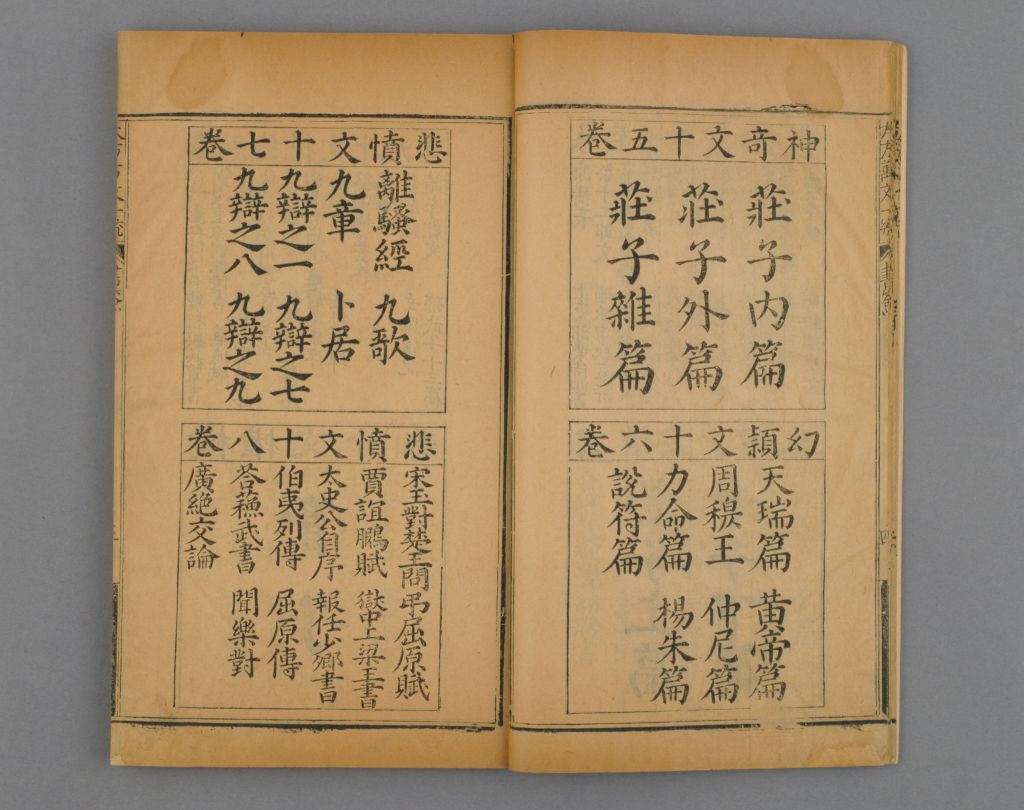 神奇文十五卷
莊子內篇
莊子外篇
莊子雜篇
幻穎文十六卷
天瑞篇 黃帝篇
周穆王 仲尼篇
力命篇 楊朱篇
說符篇
悲憤文十七卷
離騷經 九歌
九章 卜居
九辯之一 九辯之七
九辯之八 九辯之九
悲憤文十八卷
宋玉對楚王問 弔屈原賦
賈誼鵩賦 獄中上梁王書
太史公自序 報任少卿書
伯夷列傳 屈原傳
答蘓武書 聞樂對
廣絕交論